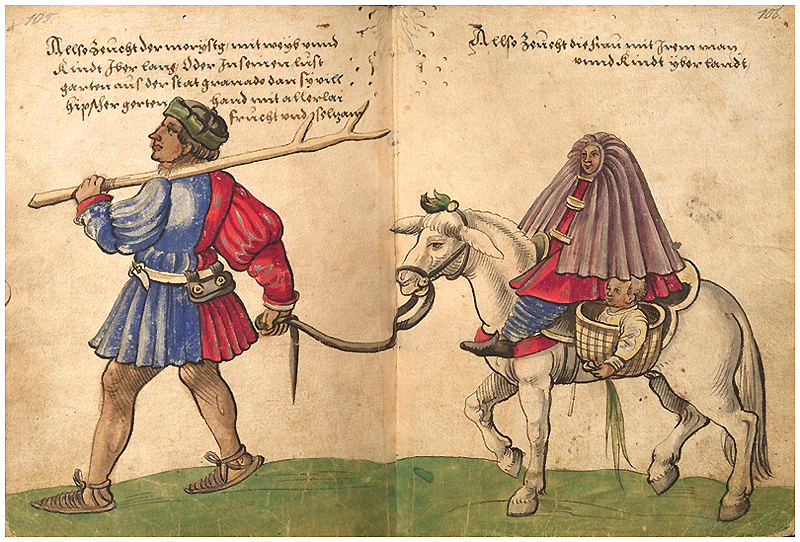 105
Allso Zeucht der morystg mit weyb unnd
Kindt Iber lang oder In seinen lust
garten aus der stat granado dan sy vill
hipscher gerten hand mit allerlai
frucht und selzam
106
Allso Zeucht die frau mit Irem man
unnd Kindt yber landt